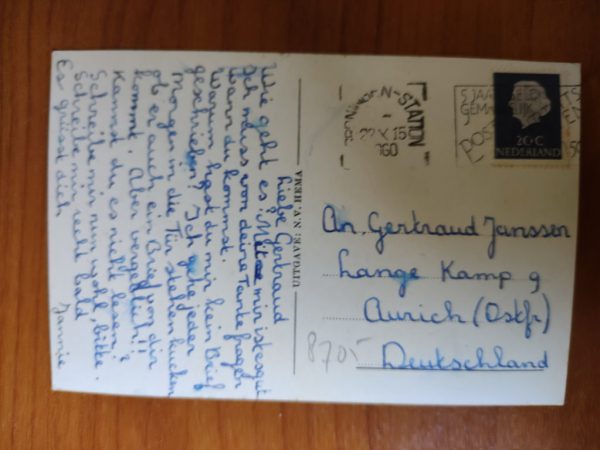 Liebe Gertraud
Wie geht es? Met mir ist es gut
Ich muss von deine Tante fragen
Wann du kommst.
Warum hast du mir kein Brief
geschrieben? Ich gehe jeder
Morgen in die Tür stehen kucken
ob er auch ein Brief von dir
kommt. Aber vergeblich!!
Kannst du es nicht lesen?
Schreibe mir nun wohl, bitte.
Schreibe mir recht bald
Es grüsst dich
Jannie
UITGAVE: N.V. HEMA
STATION
1960
20 C
NEDERLAND
5 JAAR
An. Gertraud Janssen
Lange Kamp 9
Aurich (Ostfr)
Deutschland
8705